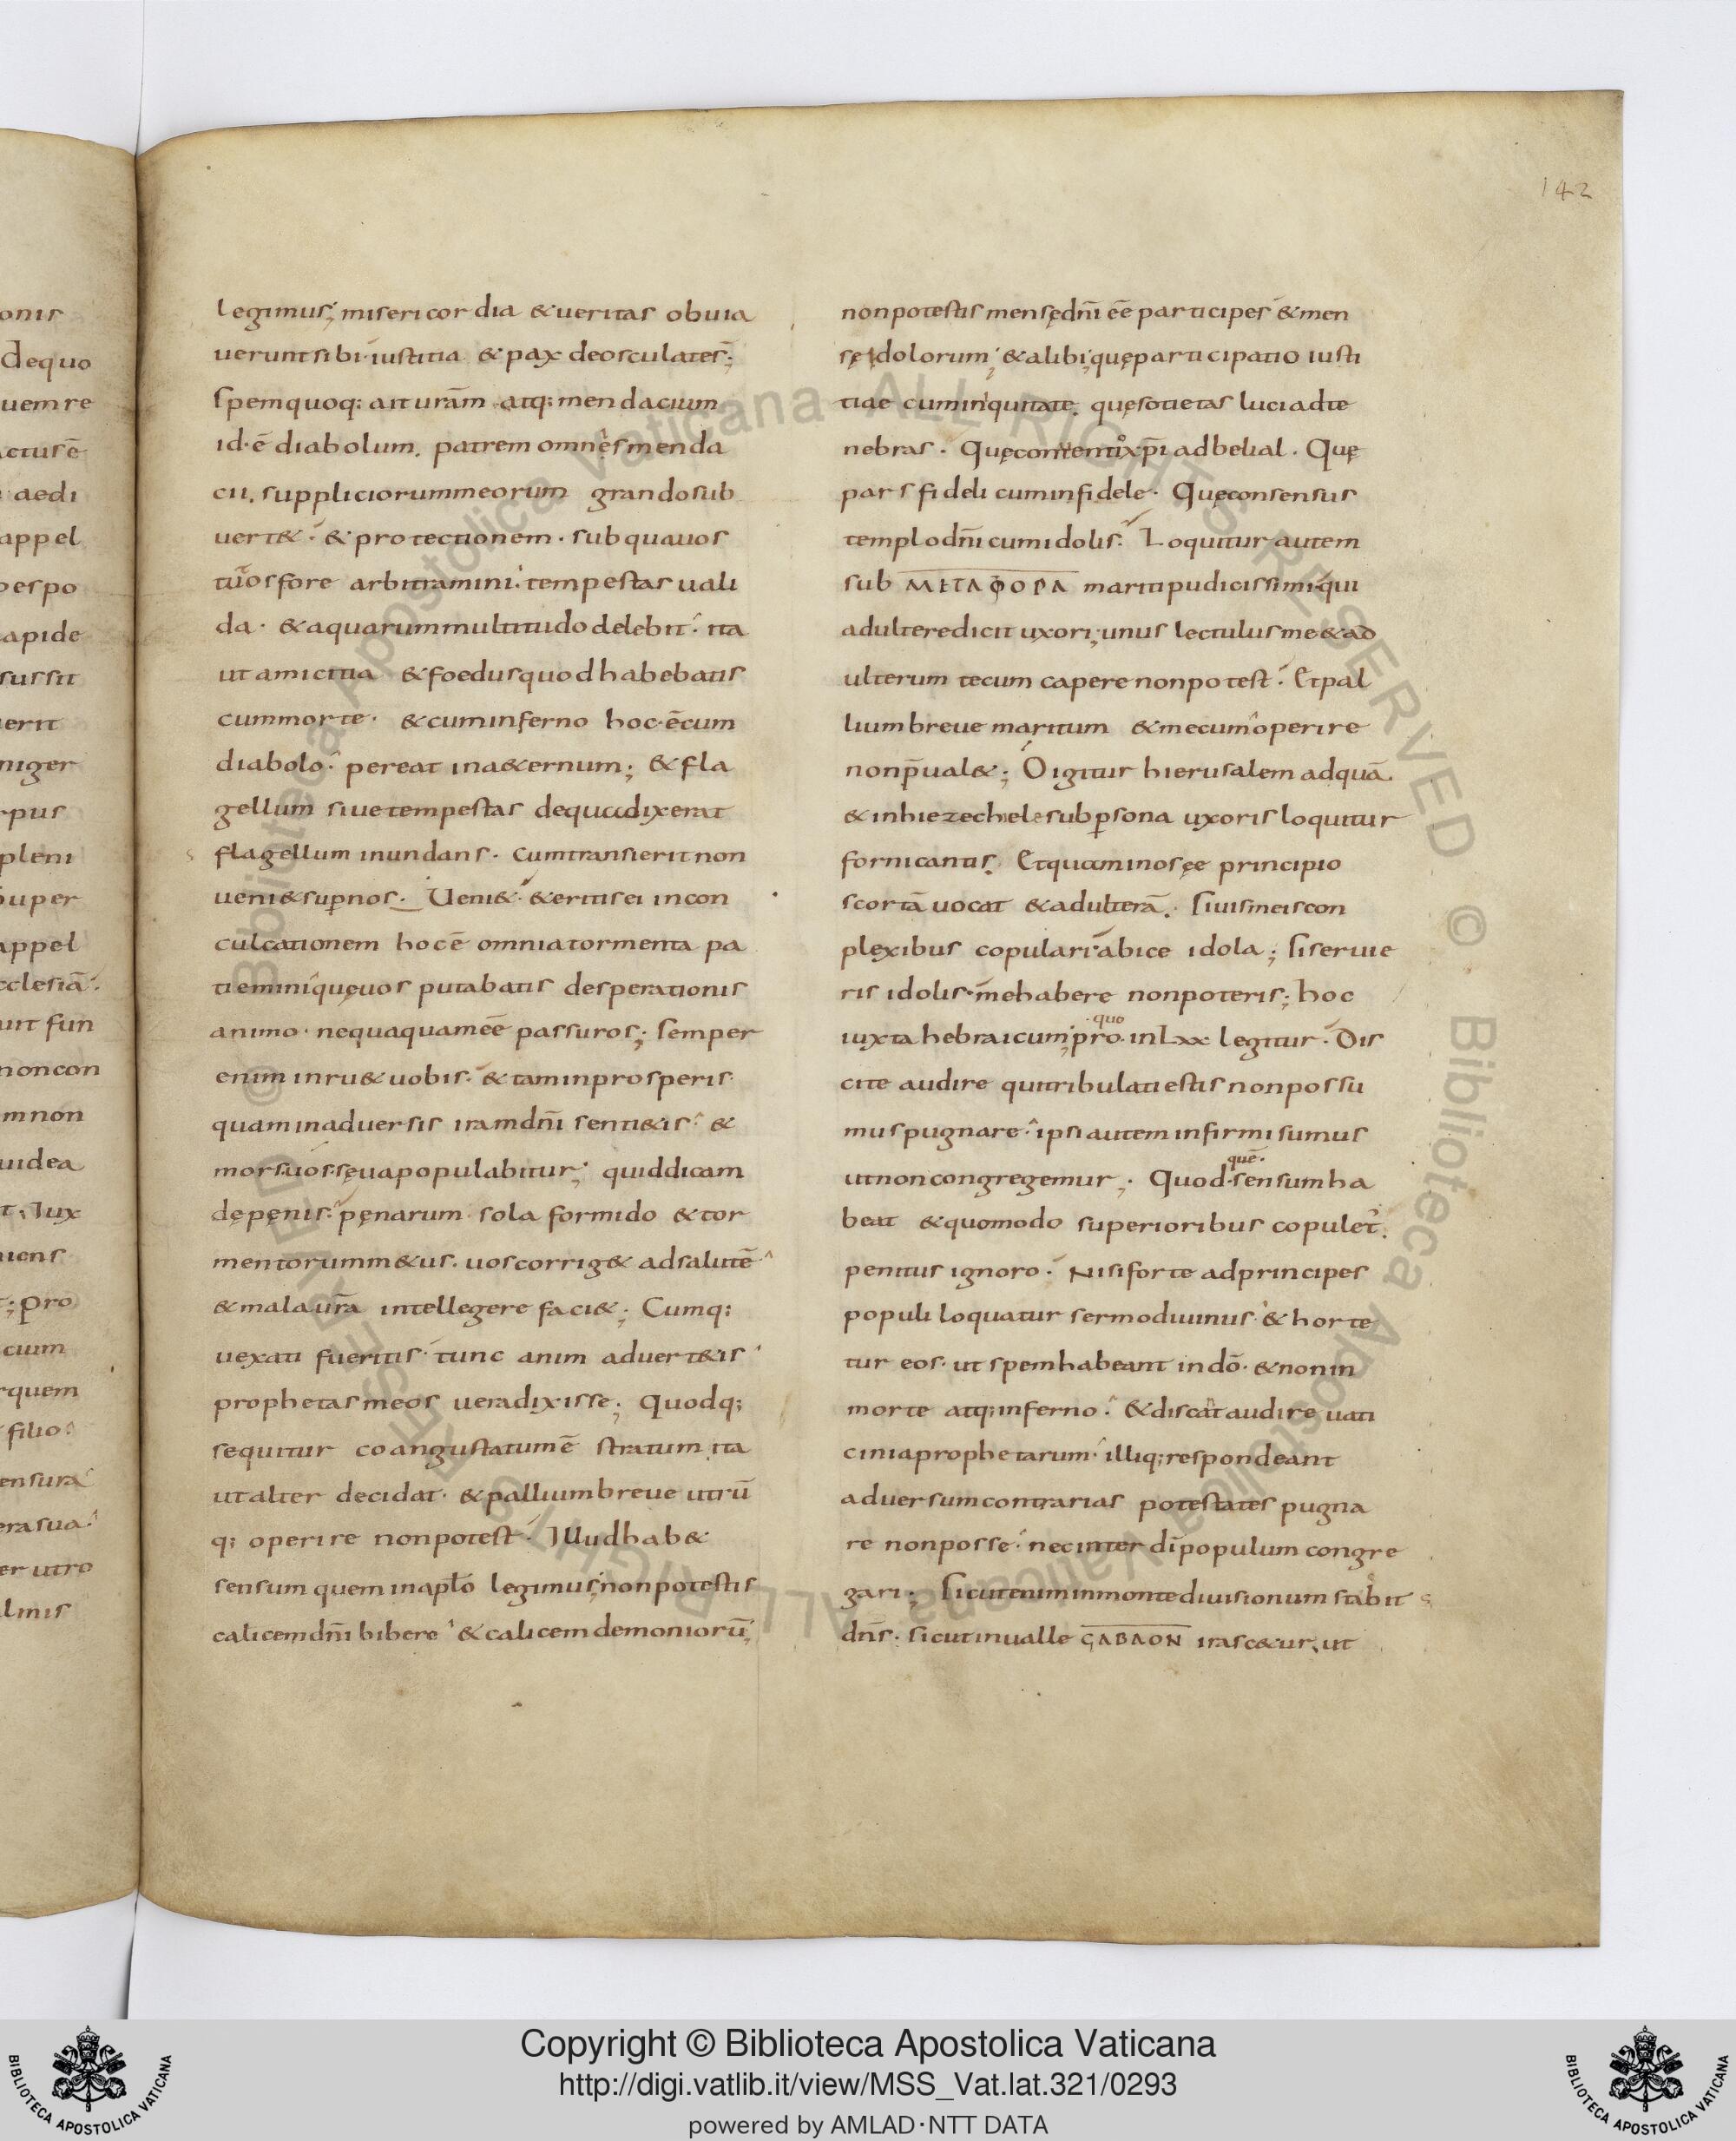 142
legimus; misericordia & ueritas obuia
uerunt sibi· iustitia & pax deosculatę s̄;
spem quoq; ait urām atq; mendacium
id·ē diabolum. patrem omnes menda
cii. suppliciorum meorum grando sub
uert&· & protectionem· sub qua uos
tutos fore arbitramini· tempestas uali
da· & aquarum multitudo delebit· ita
ut amicitia & foedus quod habebatis
cum morte· & cum inferno hoc·ē cum
diabolo· pereat in a&ernum; & fla
gellum siue tempestas de qua dixerat
flagellum inundans· cum transierit non
ueni& sup nos. Ueni&· & eritis ei in con
culcationem hoc ē omnia tormenta pa
tiemini quę uos putabatis desperationis
animo· nequaquam eē passuros; semper
enim inru& uobis· & tam in prosperis·
quam in aduersis iram dn̄i senti&is· &
mors uos sęua populabitur; quid dicam
de pęnis· pęnarum sola formido & tor
mentorum m&us· uos corrig& ad salutē
& mala ur̄a intellegere faci&; Cumq;
uexati fueritis· tunc anim aduert&is
prophetas meos uera dixisse; Quodq;
sequitur coangustatum ē stratum ita
ut alter decidat· & pallium breue utrū
q; operire non potest· Illud hab&
sensum quem in apłō legimus; non potestis
calicem dn̄i bibere & calicem demoniorū;
non potestis mensę dn̄i eē participes & men
sę idolorum; & alibi; quę participatio iusti
tiae cum iniquitate. quę sotietas luci ad te
nebras· Quę conuentio xp̄i ad belial· Quę
pars fideli cum infidele· Quę consensus
templo dn̄i cum idolis· Loquitur autem
sub ΜΕΤΑΦΟΡΑ mariti pudicissimi· qui
adulterę dicit uxori; unus lectulus me & ad
ulterum tecum capere non potest· Et pal
lium breue maritum & mecum operire
non p̄ual&; O igitur hierusalem ad quā
& in hiezechele sub p̱sona uxoris loquitur
fornicantis. Et quam in osęe principio
scortā uocat & adulterā. Si uis meis con
plexibus copulari· abice idola; si seruie
ris idolis· me habere non poteris; hoc
iuxta hebraicum; pro·quo· in Lxx legitur· Dis
cite audire qui tribulati estis non possu
mus pugnare· ipsi autem infirmi sumus
ut non congregemur; Quod·quē·sensum ha
beat & quomodo superioribus copulet̄.
penitus ignoro· Nisi forte ad principes
populi loquatur sermo diuinus· & horte
tur eos· ut spem habeant in dō· & non in
morte atq; inferno· & discant audire uati
cinia prophetarum· illiq; respondeant
aduersum contrarias potestates pugna
re non posse· nec inter dī populum congre
gari; Sicut enim in monte diuisionum stabit
dn̄s· sicut in ualle GABAON irasc&ur, ut
Copyright © Biblioteca Apostolica Vaticana
http://digi.vatlib.it/view/MSS_Vat.lat.321/0293
powered by AMLAD·NTT DATA
BIBLIOTECA APOSTOLICA VATICANA
BIBLIOTECA APOSTOLICA VATICANA